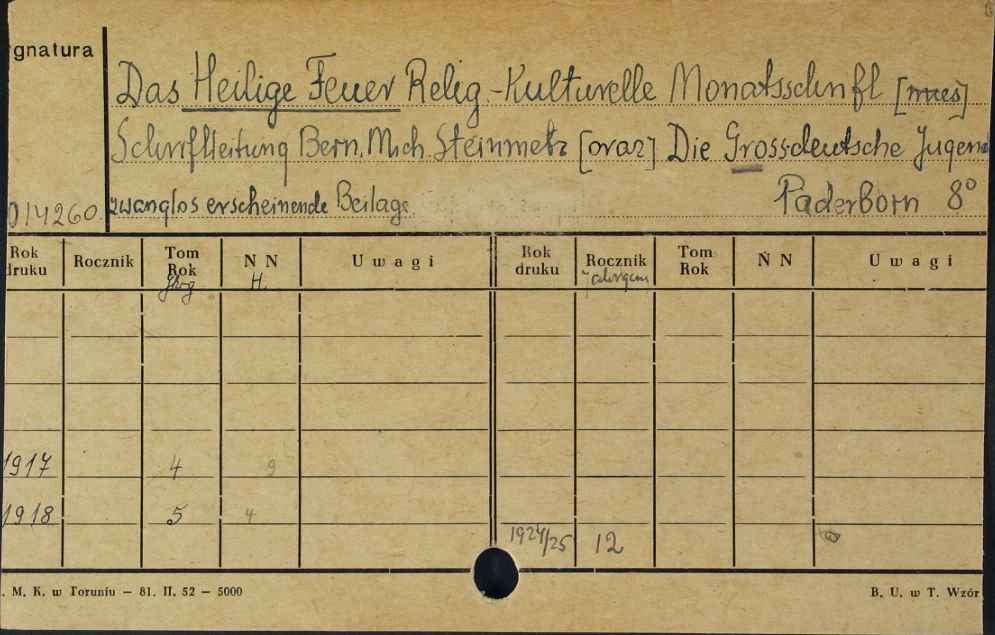 gnatura
Das Heilige Feuer Relig.-Kulturelle Monatsschrift [mies]
Schriftleitung Bern. Mich. Steinmetz [oraz] Die Grossdeutsche Jugend
014260 zwanglos erscheinende Beilage Paderborn 8°
Rok druku Rocznik Tom Rok Jhrg N N H. Uwagi Rok druku Rocznik Jahrgang Tom Rok N N Uwagi
1917 4 9
1918 5 4
1924/25 12
. M. K. w Toruniu — 81. II. 52 — 5000 B. U. w T. Wzór